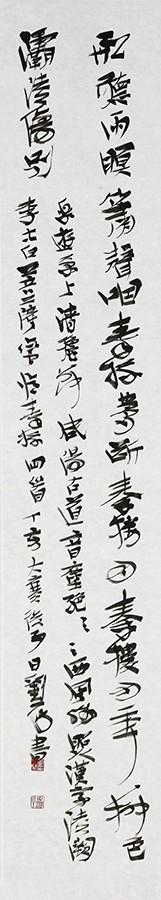 簫聲咽秦娥夢斷秦樓月秦樓月年柳色
灞陵傷別
樂遊原上清秋節咸陽古道音塵絕〻〻西風殘照漢家陵闕
李太白憶秦娥四首丁亥大寒後日劉書